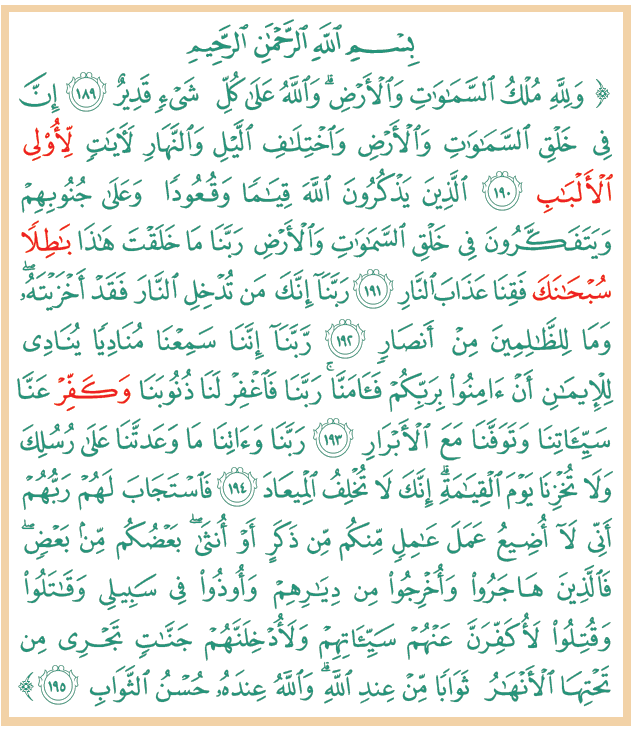 بِسْمِ اللَّهِ الرَّحْمَٰنِ الرَّحِيمِ
﴿ وَلِلَّهِ مُلْكُ السَّمَٰوَٰتِ وَالْأَرْضِ ۗ وَاللَّهُ عَلَىٰ كُلِّ شَيْءٍ قَدِيرٌ ١٨٩ إِنَّ
فِي خَلْقِ السَّمَٰوَٰتِ وَالْأَرْضِ وَاخْتِلَٰفِ الَّيْلِ وَالنَّهَارِ لَأٓيَٰتٍ لِّأُوْلِي
الْأَلْبَٰبِ ١٩٠ الَّذِينَ يَذْكُرُونَ اللَّهَ قِيَٰمًا وَقُعُودًا وَعَلَىٰ جُنُوبِهِمْ
وَيَتَفَكَّرُونَ فِي خَلْقِ السَّمَٰوَٰتِ وَالْأَرْضِ رَبَّنَا مَا خَلَقْتَ هَٰذَا بَٰطِلًا
سُبْحَٰنَكَ فَقِنَا عَذَابَ النَّارِ ١٩١ رَبَّنَآ إِنَّكَ مَن تُدْخِلِ النَّارَ فَقَدْ أَخْزَيْتَهُۥ ۖ
وَمَا لِلظَّٰلِمِينَ مِنْ أَنصَارٍ ١٩٢ رَّبَّنَآ إِنَّنَا سَمِعْنَا مُنَادِيًا يُنَادِي
لِلْإِيمَٰنِ أَنْ ءَامِنُواْ بِرَبِّكُمْ فَـَٔامَنَّا ۚ رَبَّنَا فَاغْفِرْ لَنَا ذُنُوبَنَا وَكَفِّرْ عَنَّا
سَيِّـَٔاتِنَا وَتَوَفَّنَا مَعَ الْأَبْرَارِ ١٩٣ رَبَّنَا وَءَاتِنَا مَا وَعَدتَّنَا عَلَىٰ رُسُلِكَ
وَلَا تُخْزِنَا يَوْمَ الْقِيَٰمَةِ ۗ إِنَّكَ لَا تُخْلِفُ الْمِيعَادَ ١٩٤ فَاسْتَجَابَ لَهُمْ رَبُّهُمْ
أَنِّي لَآ أُضِيعُ عَمَلَ عَٰمِلٍ مِّنكُم مِّن ذَكَرٍ أَوْ أُنثَىٰ ۖ بَعْضُكُم مِّنۢ بَعْضٍ ۖ
فَالَّذِينَ هَاجَرُواْ وَأُخْرِجُواْ مِن دِيَٰرِهِمْ وَأُوذُواْ فِي سَبِيلِي وَقَٰتَلُواْ
وَقُتِلُواْ لَأُكَفِّرَنَّ عَنْهُمْ سَيِّـَٔاتِهِمْ وَلَأُدْخِلَنَّهُمْ جَنَّٰتٍ تَجْرِي مِن
تَحْتِهَا الْأَنْهَٰرُ ثَوَابًا مِّنْ عِندِ اللَّهِ ۗ وَاللَّهُ عِندَهُۥ حُسْنُ الثَّوَابِ ١٩٥ ﴾